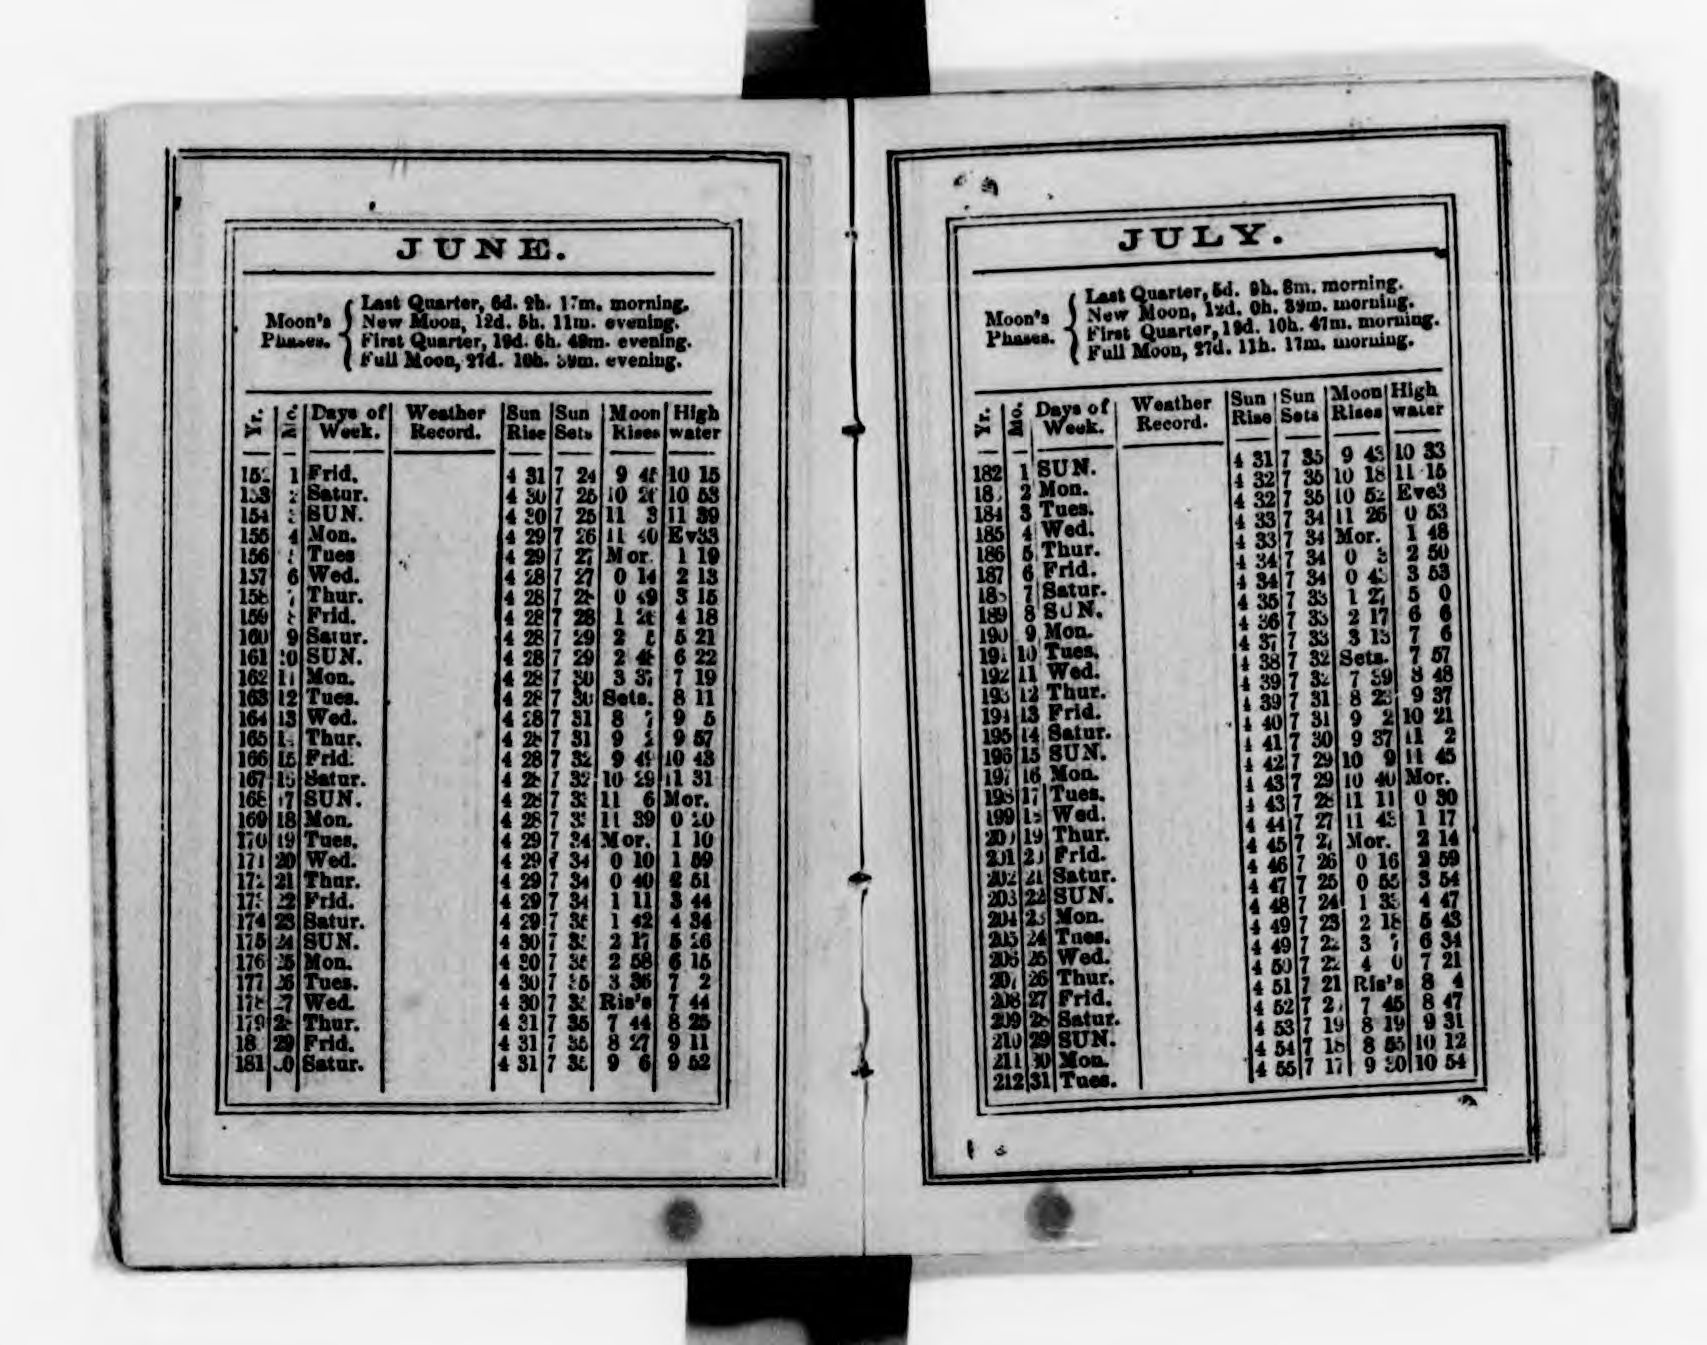 JUNE.
Moon's Phases.
Last Quarter, 6d. 9h. 17m. morning.
New Moon, 12d. 5h. 11m. evening.
First Quarter, 19d. 6h. 49m. evening.
Full Moon, 27d. 10h. 39m. evening.
Yr. Mo. Days of Week. Weather Record. Sun Rise Sun Sets Moon Rises High water
152 1 Frid. 4 31 7 24 9 10 15
153 Satur. 4 30 7 25 10 10 53
154 SUN. 4 30 7 25 11 3 11 39
155 4 Mon. 4 29 7 26 11 40 Ev33
156 Tues 4 29 7 27 Mor. 1 19
157 6 Wed. 4 28 7 27 0 14 2 13
158 Thur. 4 28 7 28 0 49 3 15
159 Frid. 4 28 7 28 1 4 18
160 9 Satur. 4 28 7 29 2 5 21
161 10 SUN. 4 28 7 29 2 6 22
162 11 Mon. 4 28 7 30 3 37 7 19
163 12 Tues. 4 28 7 30 Sets. 8 11
164 13 Wed. 4 28 7 31 8 9 5
165 Thur. 4 28 7 31 9 9 57
166 15 Frid. 4 28 7 32 9 49 10 43
167 16 Satur. 4 28 7 32 10 29 11 31
168 17 SUN. 4 28 7 33 11 6 Mor.
169 18 Mon. 4 28 7 11 39 0 20
170 19 Tues. 4 29 7 34 Mor. 1 10
171 20 Wed. 4 29 7 34 0 10 1 59
172 21 Thur. 4 29 7 34 0 40 2 51
173 22 Frid. 4 29 7 34 1 11 3 44
174 23 Satur. 4 29 7 35 1 42 4 34
175 24 SUN. 4 30 7 35 2 17 5 26
176 25 Mon. 4 30 7 35 2 58 6 15
177 26 Tues. 4 30 7 35 3 36 7 2
178 27 Wed. 4 30 7 35 Ris's 7 44
179 28 Thur. 4 31 7 35 7 44 8 25
18 29 Frid. 4 31 7 35 8 27 9 11
181 30 Satur. 4 31 7 35 9 6 9 52
JULY.
Moon's Phases.
Last Quarter, 5d. 9h. 8m. morning.
New Moon, 12d. 0h. 39m. morning.
First Quarter, 19d. 10h. 47m. morning.
Full Moon, 27d. 11h. 17m. morning.
Yr. Mo. Days of Week. Weather Record. Sun Rise Sun Sets Moon Rises High water
182 1 SUN. 4 31 7 35 9 43 10 33
18 2 Mon. 4 32 7 35 10 18 11 15
184 3 Tues. 4 32 7 35 10 52 Eve3
185 4 Wed. 4 33 7 34 11 26 0 53
186 5 Thur. 4 33 7 34 Mor. 1 48
187 6 Frid. 4 34 7 34 0 3 2 50
188 7 Satur. 4 34 7 34 0 43 3 53
189 8 SUN. 4 35 7 33 1 27 5 0
190 9 Mon. 4 36 7 33 2 17 6 6
191 10 Tues. 4 37 7 33 3 13 7 6
192 11 Wed. 4 38 7 32 Sets. 7 57
193 12 Thur. 4 39 7 32 7 39 8 48
194 13 Frid. 4 39 7 31 8 23 9 37
195 14 Satur. 4 40 7 31 9 2 10 21
196 15 SUN. 4 41 7 30 9 37 11 2
197 16 Mon. 4 42 7 29 10 9 11 45
198 17 Tues. 4 43 7 29 10 40 Mor.
199 18 Wed. 4 43 7 28 11 11 0 30
200 19 Thur. 4 44 7 27 11 43 1 17
201 20 Frid. 4 45 7 27 Mor. 2 14
202 21 Satur. 4 46 7 26 0 16 2 59
203 22 SUN. 4 47 7 25 0 55 3 54
204 23 Mon. 4 48 7 24 1 33 4 47
205 24 Tues. 4 49 7 23 2 18 5 43
206 25 Wed. 4 49 7 22 3 7 6 34
207 26 Thur. 4 50 7 22 4 0 7 21
208 27 Frid. 4 51 7 21 Ris's 8 4
209 28 Satur. 4 52 7 2 7 45 8 47
210 29 SUN. 4 53 7 19 8 19 9 31
211 30 Mon. 4 54 7 18 8 55 10 12
212 31 Tues. 4 55 7 17 9 30 10 54